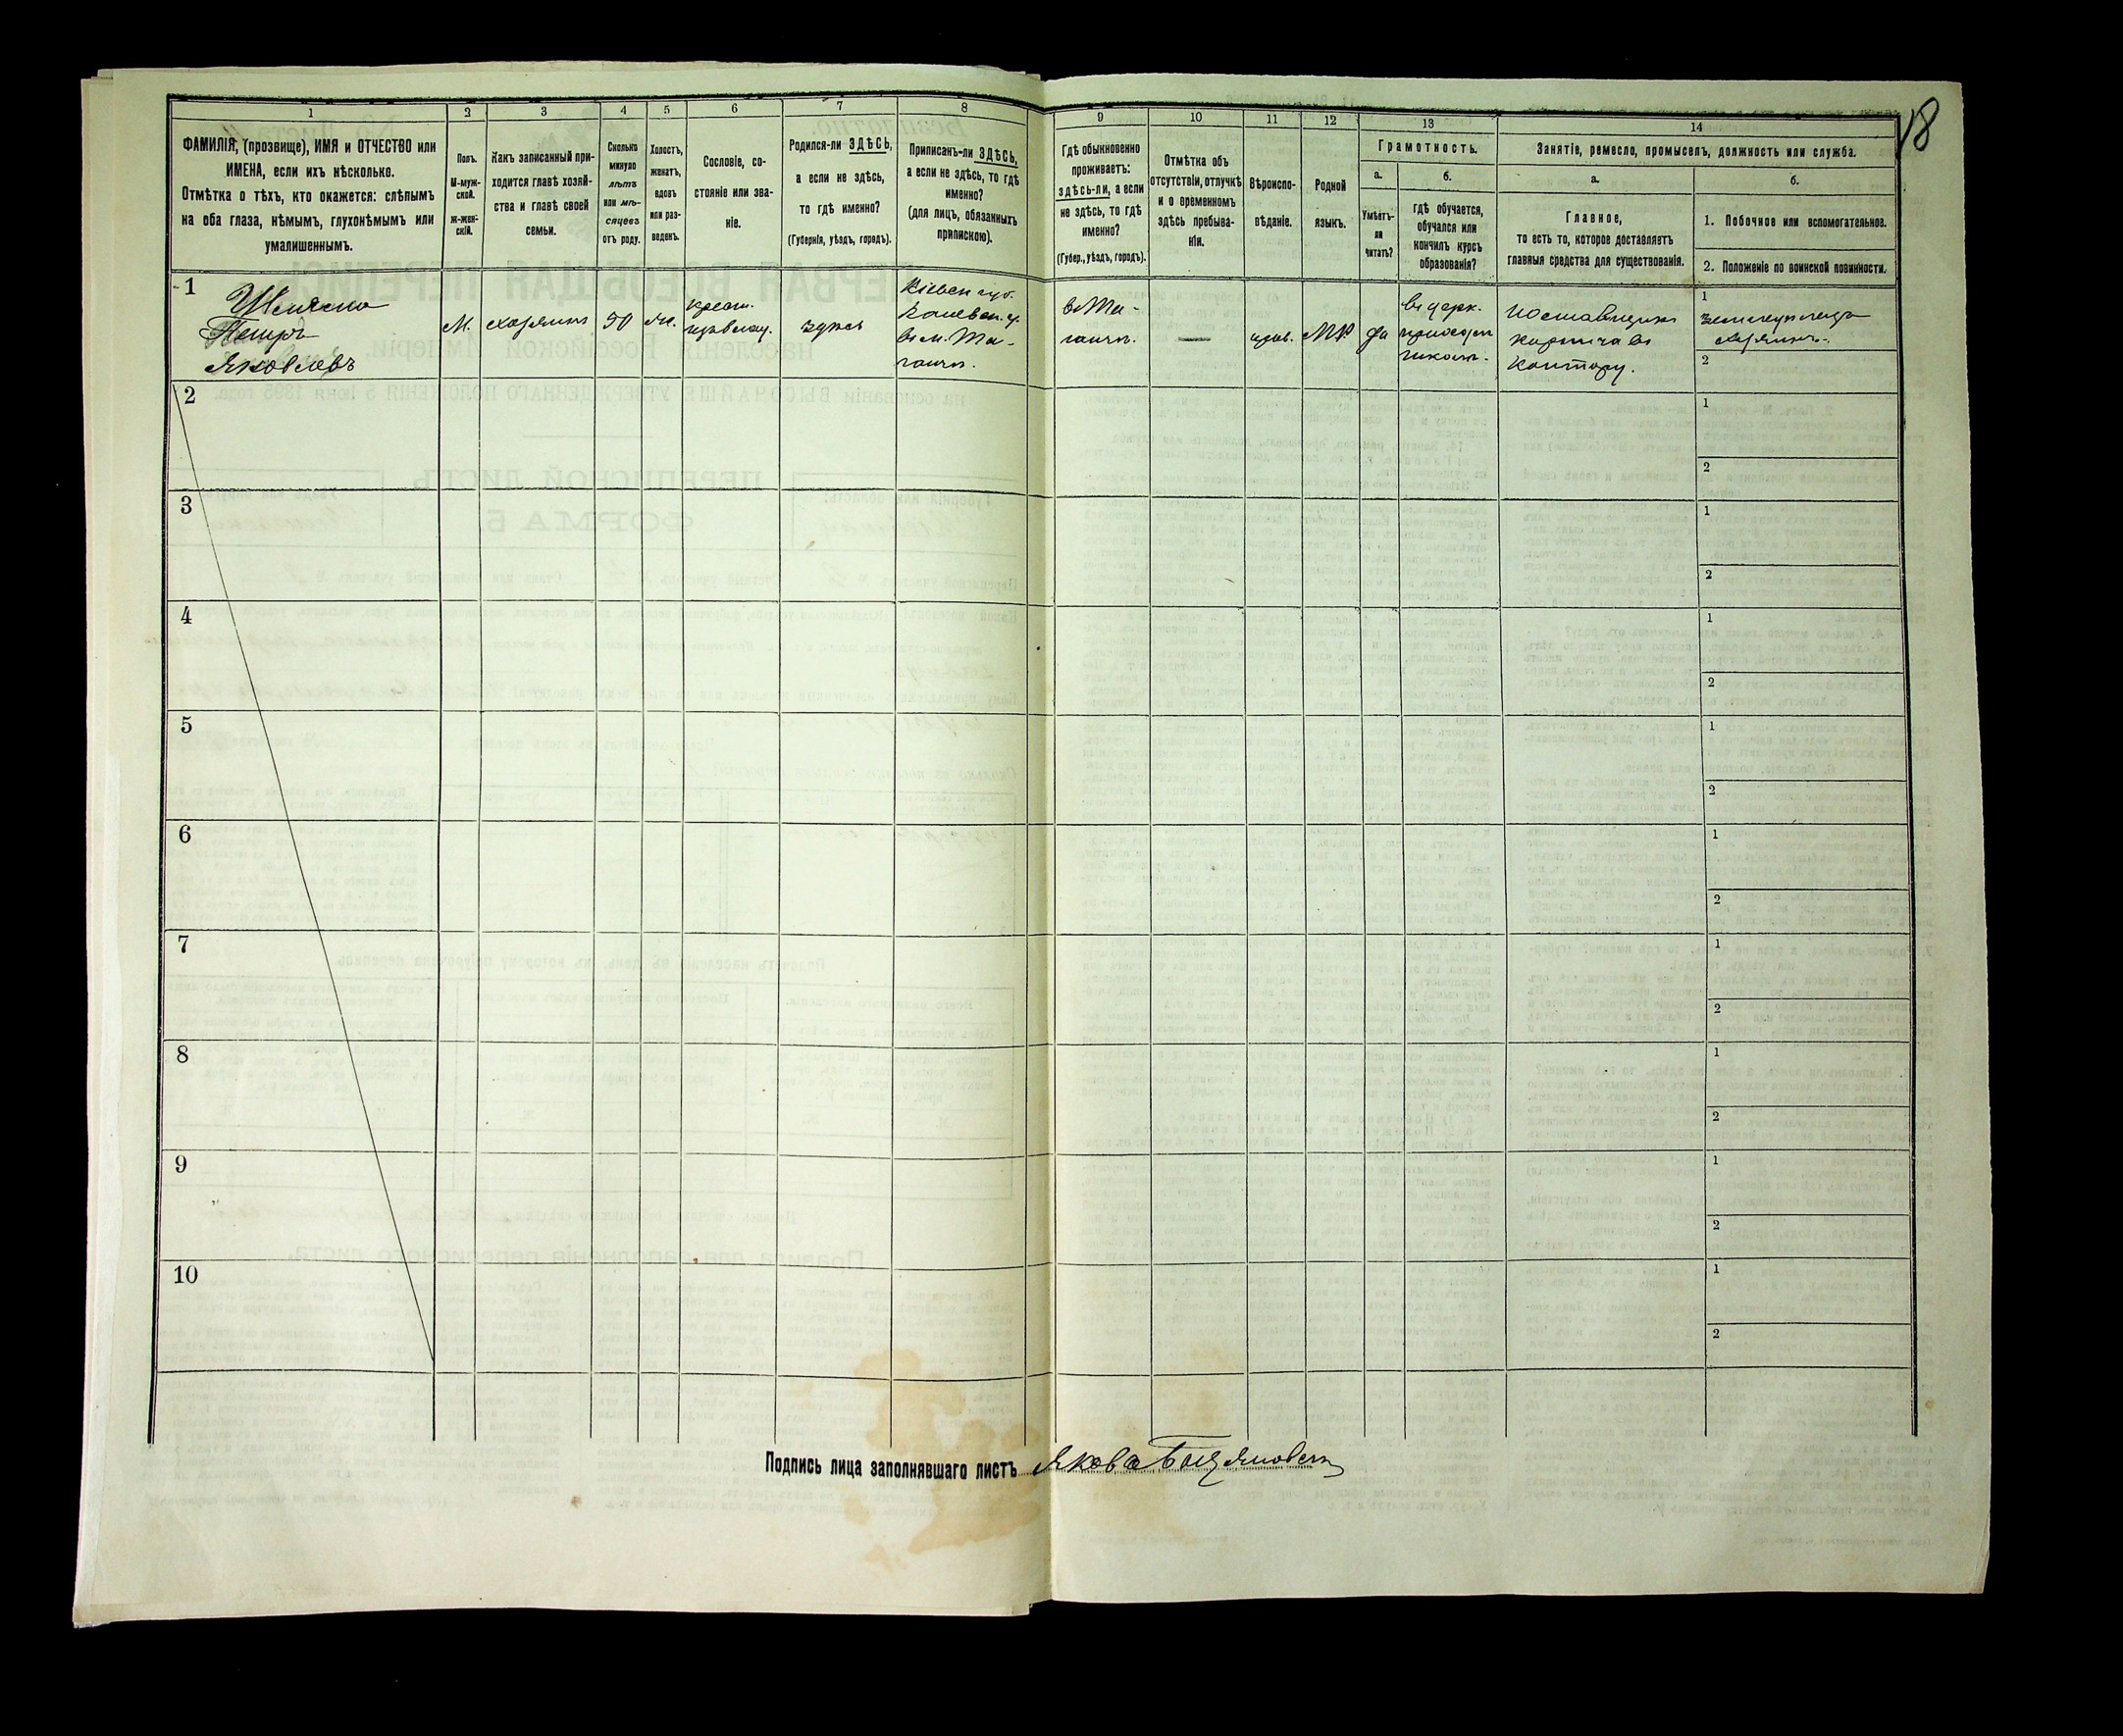 18
1
2
3
4
5
6
7
8
9
10
11
12
13
14
ФАМИЛІЯ, (прозвище), ИМЯ и ОТЧЕСТВО или
ИМЕНА, если ихъ нѣсколько.
Отмѣтка о тѣхъ, кто окажется: слѣпымъ
на оба глаза, нѣмымъ, глухонѣмымъ или
умалишеннымъ.
Полъ.
М-муж-
ской.
Ж-жен-
скій.
Какъ записанный при-
ходится главѣ хозяй-
ства и главѣ своей
семьи.
Сколько
минуло
лѣтъ
или мѣ-
сяцевъ
отъ роду.
Холостъ,
женатъ,
вдовъ
или раз-
веденъ.
Сословіе, со-
стояніе или зва-
ніе.
Родился-ли ЗДѢСЬ,
а если не здѣсь,
то гдѣ именно?
(Губернія, уѣздъ, городъ).
Приписанъ-ли ЗДѢСЬ,
а если не здѣсь, то гдѣ
именно?
(для лицъ, обязанныхъ
припискою).
Гдѣ обыкновенно
проживаетъ:
здѣсь-ли, а если
не здѣсь, то гдѣ
именно?
(Губер., уѣздъ, городъ).
Отмѣтка объ
отсутствіи, отлучкѣ
и о временномъ
здѣсь пребыва-
ніи.
Вѣроиспо-
вѣданіе.
Родной
языкъ.
Грамотность.
а.
Умѣетъ-
ли
читать?
б.
гдѣ обучается,
обучался или
кончилъ курсъ
образованія?
Занятіе, ремесло, промыселъ, должность или служба.
а.
Главное,
то есть то, которое доставляетъ
главныя средства для существованія.
б.
1. Побочное или вспомогательное.
2. Положеніе по воинской повинности.
1
Петръ
Яковлевъ
М.
хозяинъ
50
крест.
здѣсь
Кіевск губ.
Каневск. у.
в м.
прав.
МР
да
в церк.
приходск
школѣ.
Поставщикъ
кирпича въ
Контору.
1
2
2
1
2
3
1
2
4
1
2
5
1
2
6
1
2
7
1
2
8
1
2
9
1
2
10
1
2
Подпись лица заполнявшаго листъ